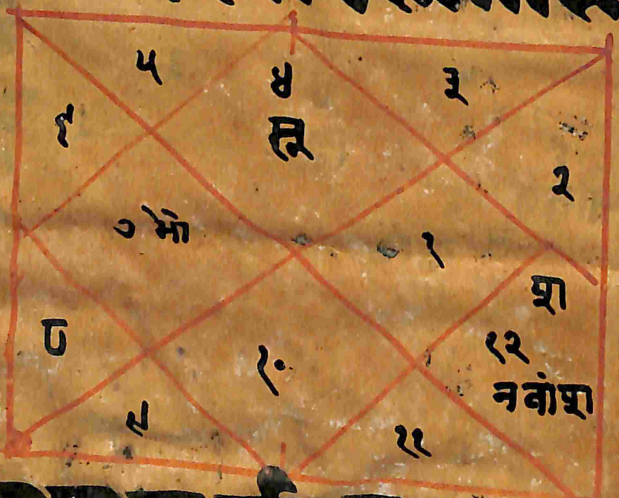 ५ ४ ३
६ सू
२
७ भौ १
शा
८ १२
१० नवांशा
९ ११